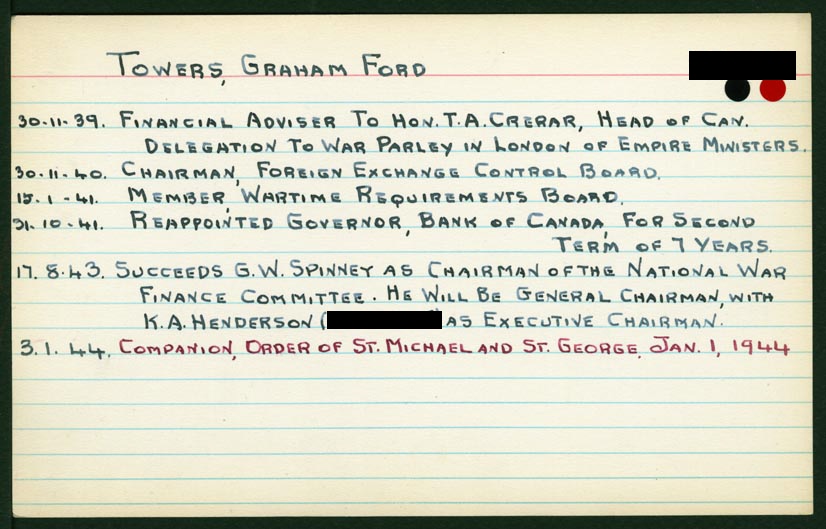 Towers, Graham Ford
30-11-39. Financial Adviser To Hon. T.A. Crerar, Head of Can.
Delegation To War Parley in London of Empire Ministers.
30-11-40. Chairman, Foreign Exchange Control Board.
15.1-41. Member, Wartime Requirements Board.
31-10-41. Reappointed Governor, Bank of Canada, For Second
Term of 7 Years.
17.8-43. Succeeds G.W. Spinney as Chairman of the National War
Finance Committee. He Will Be General Chairman, with
K.A. Henderson ( as Executive Chairman.
3.1.44. Companion, Order of St. Michael and St. George, Jan. 1, 1944